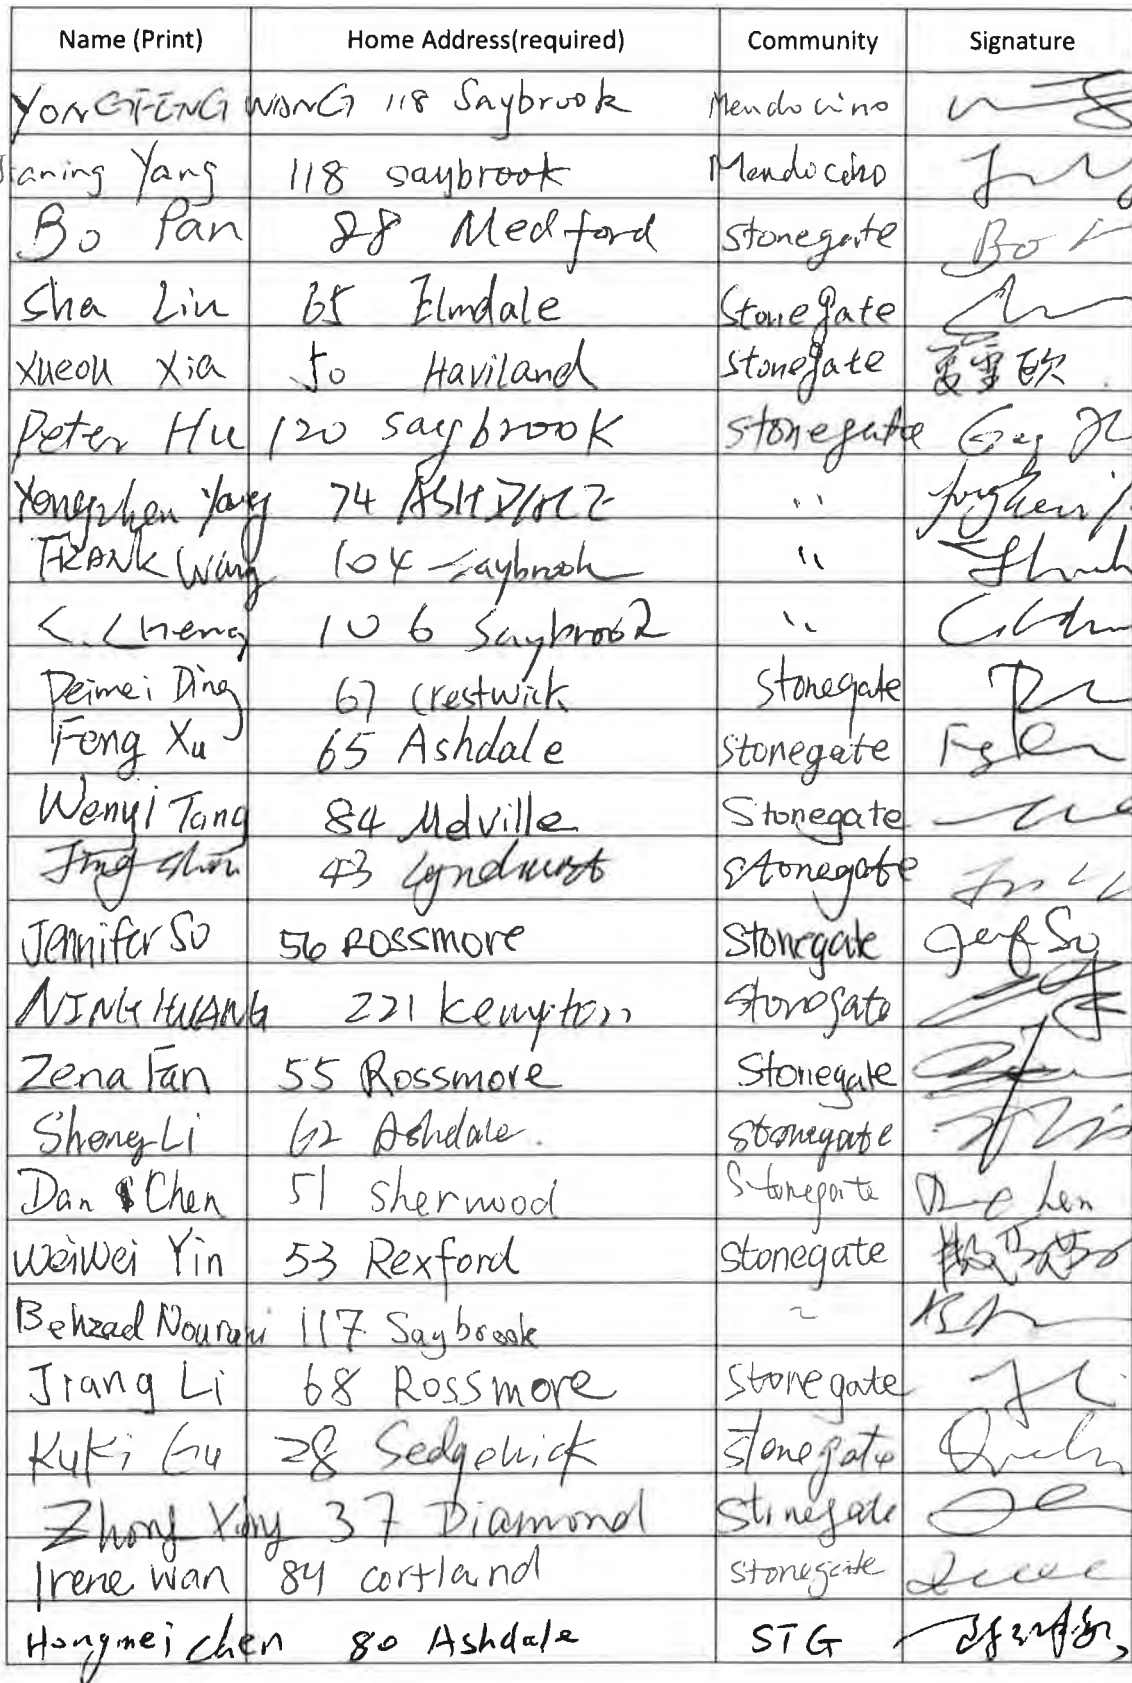 Name (Print) Home Address(required) Community Signature
YONGFENG WANG 118 Saybrook Mendocino
Jianing Yang 118 saybrook Mendocino
Bo Pan 88 Medford stonegate Bo
Sha Liu 65 Elmdale Stonegate
Xueou Xia 50 Haviland Stonegate 夏雪欧
Peter Hu 120 saybrook stonegate
Yongzhen Yang 74 ASHDALE "
FRANK Wang 104 Saybrook "
C. Cheng 106 Saybrook "
Peimei Ding 67 Crestwick Stonegate
Feng Xu 65 Ashdale Stonegate
Wenyi Tang 84 Melville Stonegate
Jing 43 Lyndhurst Stonegate
Jennifer So 56 ROSSmore Stonegate Jenf So
NING HUANG 221 kempton Stonegate
Zena Fan 55 Rossmore Stonegate
Sheng Li 62 Ashdale. Stonegate
Dan Chen 51 Sherwood Stonegate Chen
WeiWei Yin 53 Rexford Stonegate
Behzad Nourani 117 Saybrook
Jiang Li 68 Rossmore Stonegate
KuKi Gu 28 Sedgewick Stonegate
Zhong Xing 37 Diamond Stonegate
Irene Wan 84 cortland Stonegate
Hongmei chen 80 Ashdale STG